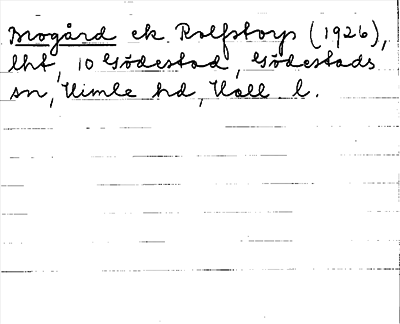 Brogård ek. Rolfstorps (1926),
lht, 10 Gödestad, Gödestads
sn, Himle hd, Hall. l.